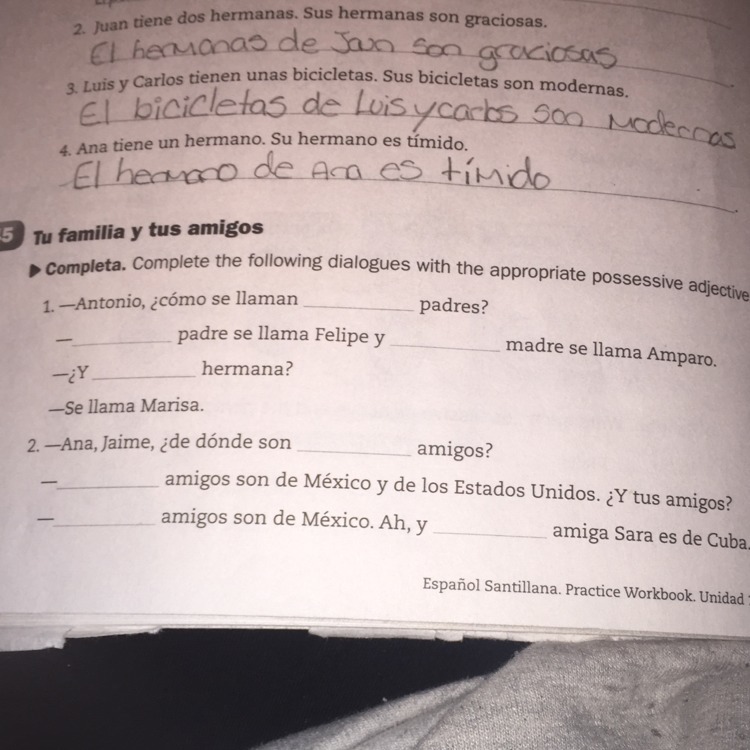 2. Juan tiene dos hermanas. Sus hermanas son graciosas.
El hermanas de Jaun son graciosas
3. Luis y Carlos tienen unas bicicletas. Sus bicicletas son modernas.
El bicicletas de Luis y carlos son Modernas
4. Ana tiene un hermano. Su hermano es tímido.
El hermano de Ana es tímido
5 Tu familia y tus amigos
▶ Completa. Complete the following dialogues with the appropriate possessive adjective
1. —Antonio, ¿cómo se llaman ____________ padres?
—____________ padre se llama Felipe y ____________ madre se llama Amparo.
—¿Y ____________ hermana?
—Se llama Marisa.
2. —Ana, Jaime, ¿de dónde son ____________ amigos?
—____________ amigos son de México y de los Estados Unidos. ¿Y tus amigos?
—____________ amigos son de México. Ah, y ____________ amiga Sara es de Cuba.
Español Santillana. Practice Workbook. Unidad